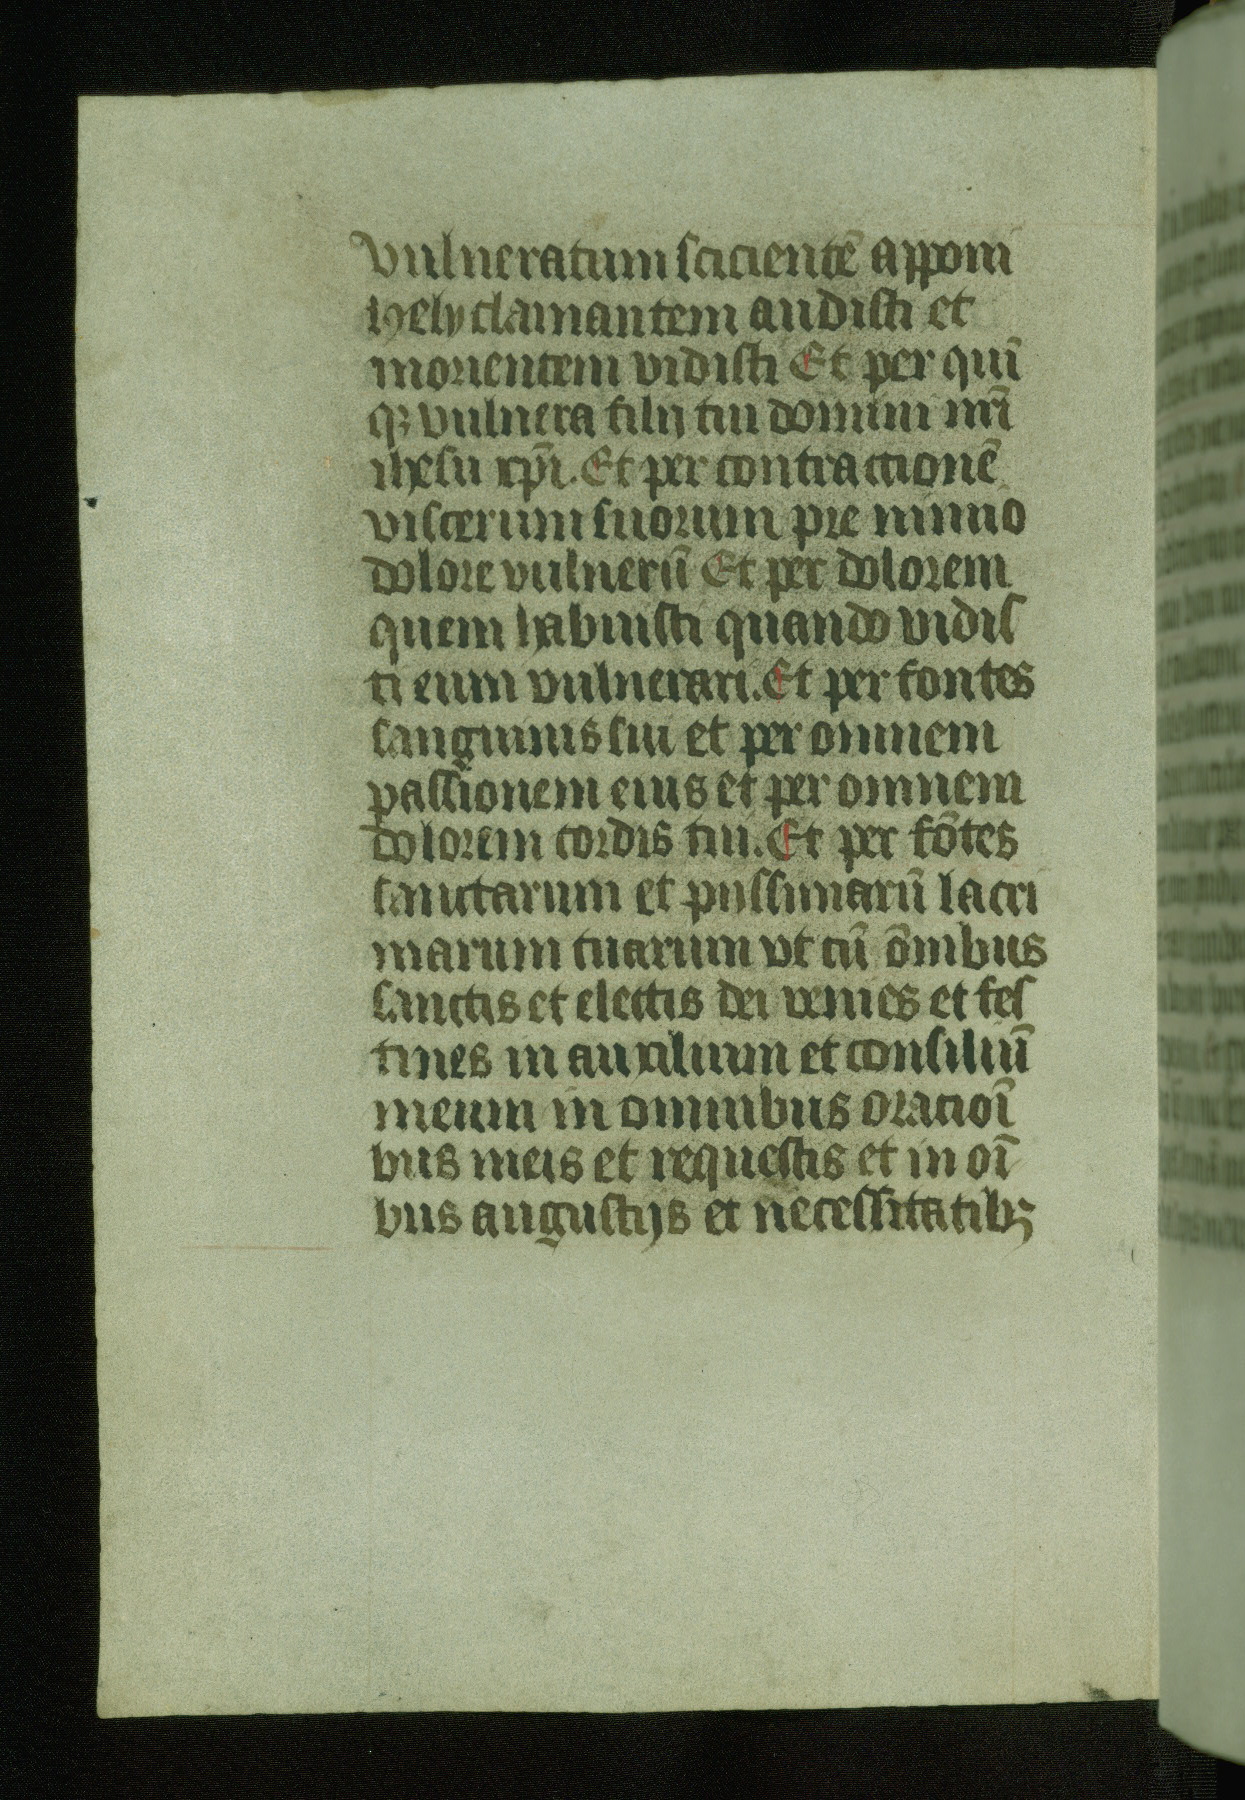 vulneratum scicientē apponi
hely clamantem audisti et
morientem vidisti Et per quī
qꝫ vulnera filij tui domini nr̄i
ihesu xp̄i. Et per contractionē
viscerum suorum pre nimio
dolore vulnerū Et per dolorem
quem habuisti quando vidis
ti eum vulnerari. Et per fontes
sanguinis sui et per omnem
passionem eius et per omnem
dolorem cordis tui. Et per fōtes
sanctarum et pijssimarū lacri
marum tuarum vt cū om̄ibus
sanctis et electis dei venies et fes
tines in auxilium et consiliū
meum in omnibus oracioī
bus meis et requestis et in oī
bus angustijs et necessitatibꝫ